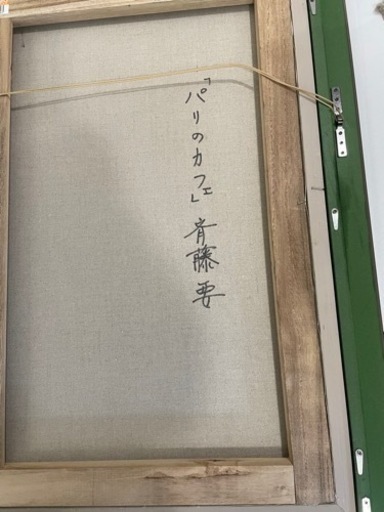 「パリのカフェ」斉藤要